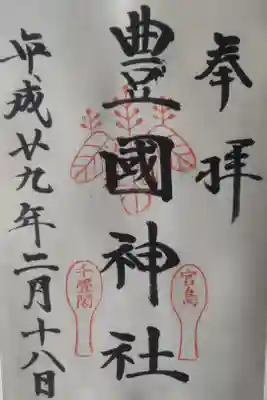 奉拝
豊國神社
宮島
千畳閣
平成廿九年二月十八日